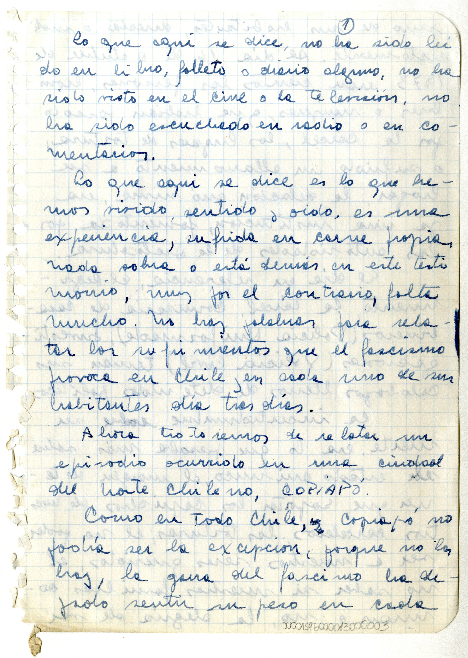 1
Lo que aqui se dice, no ha sido lei
do en libro, folleto o diario alguno, no ha
sido visto en el cine o la television, no
ha sido escuchado en radio o en co-
mentarios.
Lo que aqui se dice es lo que he-
mos vivido, sentido y oido, es una
experiencia, sufrida en carne propia,
nada sobra o está demás, en este testi
monio, muy por el contrario, falta
mucho. No hay palabras para rela-
tar los sufrimientos que el fascismo
provoca en Chile y en cada uno de sus
habitantes día tras días.
Ahora trataremos de relatar un
episodio ocurrido en una ciudad
del norte Chileno, COPIAPÓ.
Como en todo Chile, y Copiapó no
podía ser la excepcion, porque no las
hay, la garra del fascimo ha de-
jado sentir su peso en cada